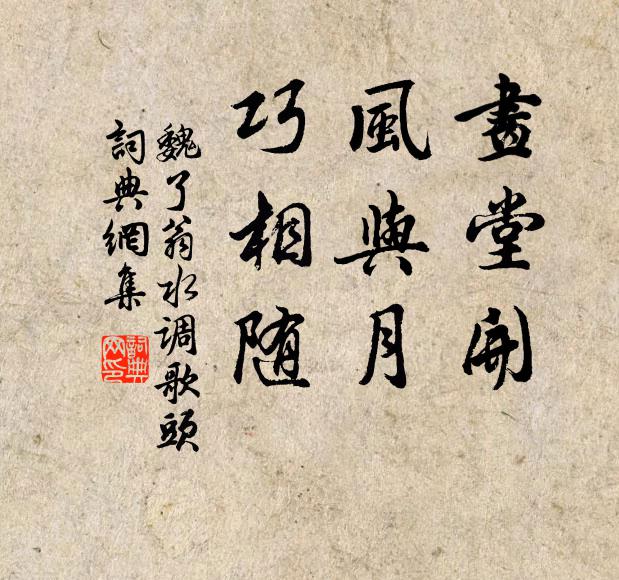 畫堂開
風與月
巧相隨
魏了翁水调歌頭
詞典網集
詞典網印